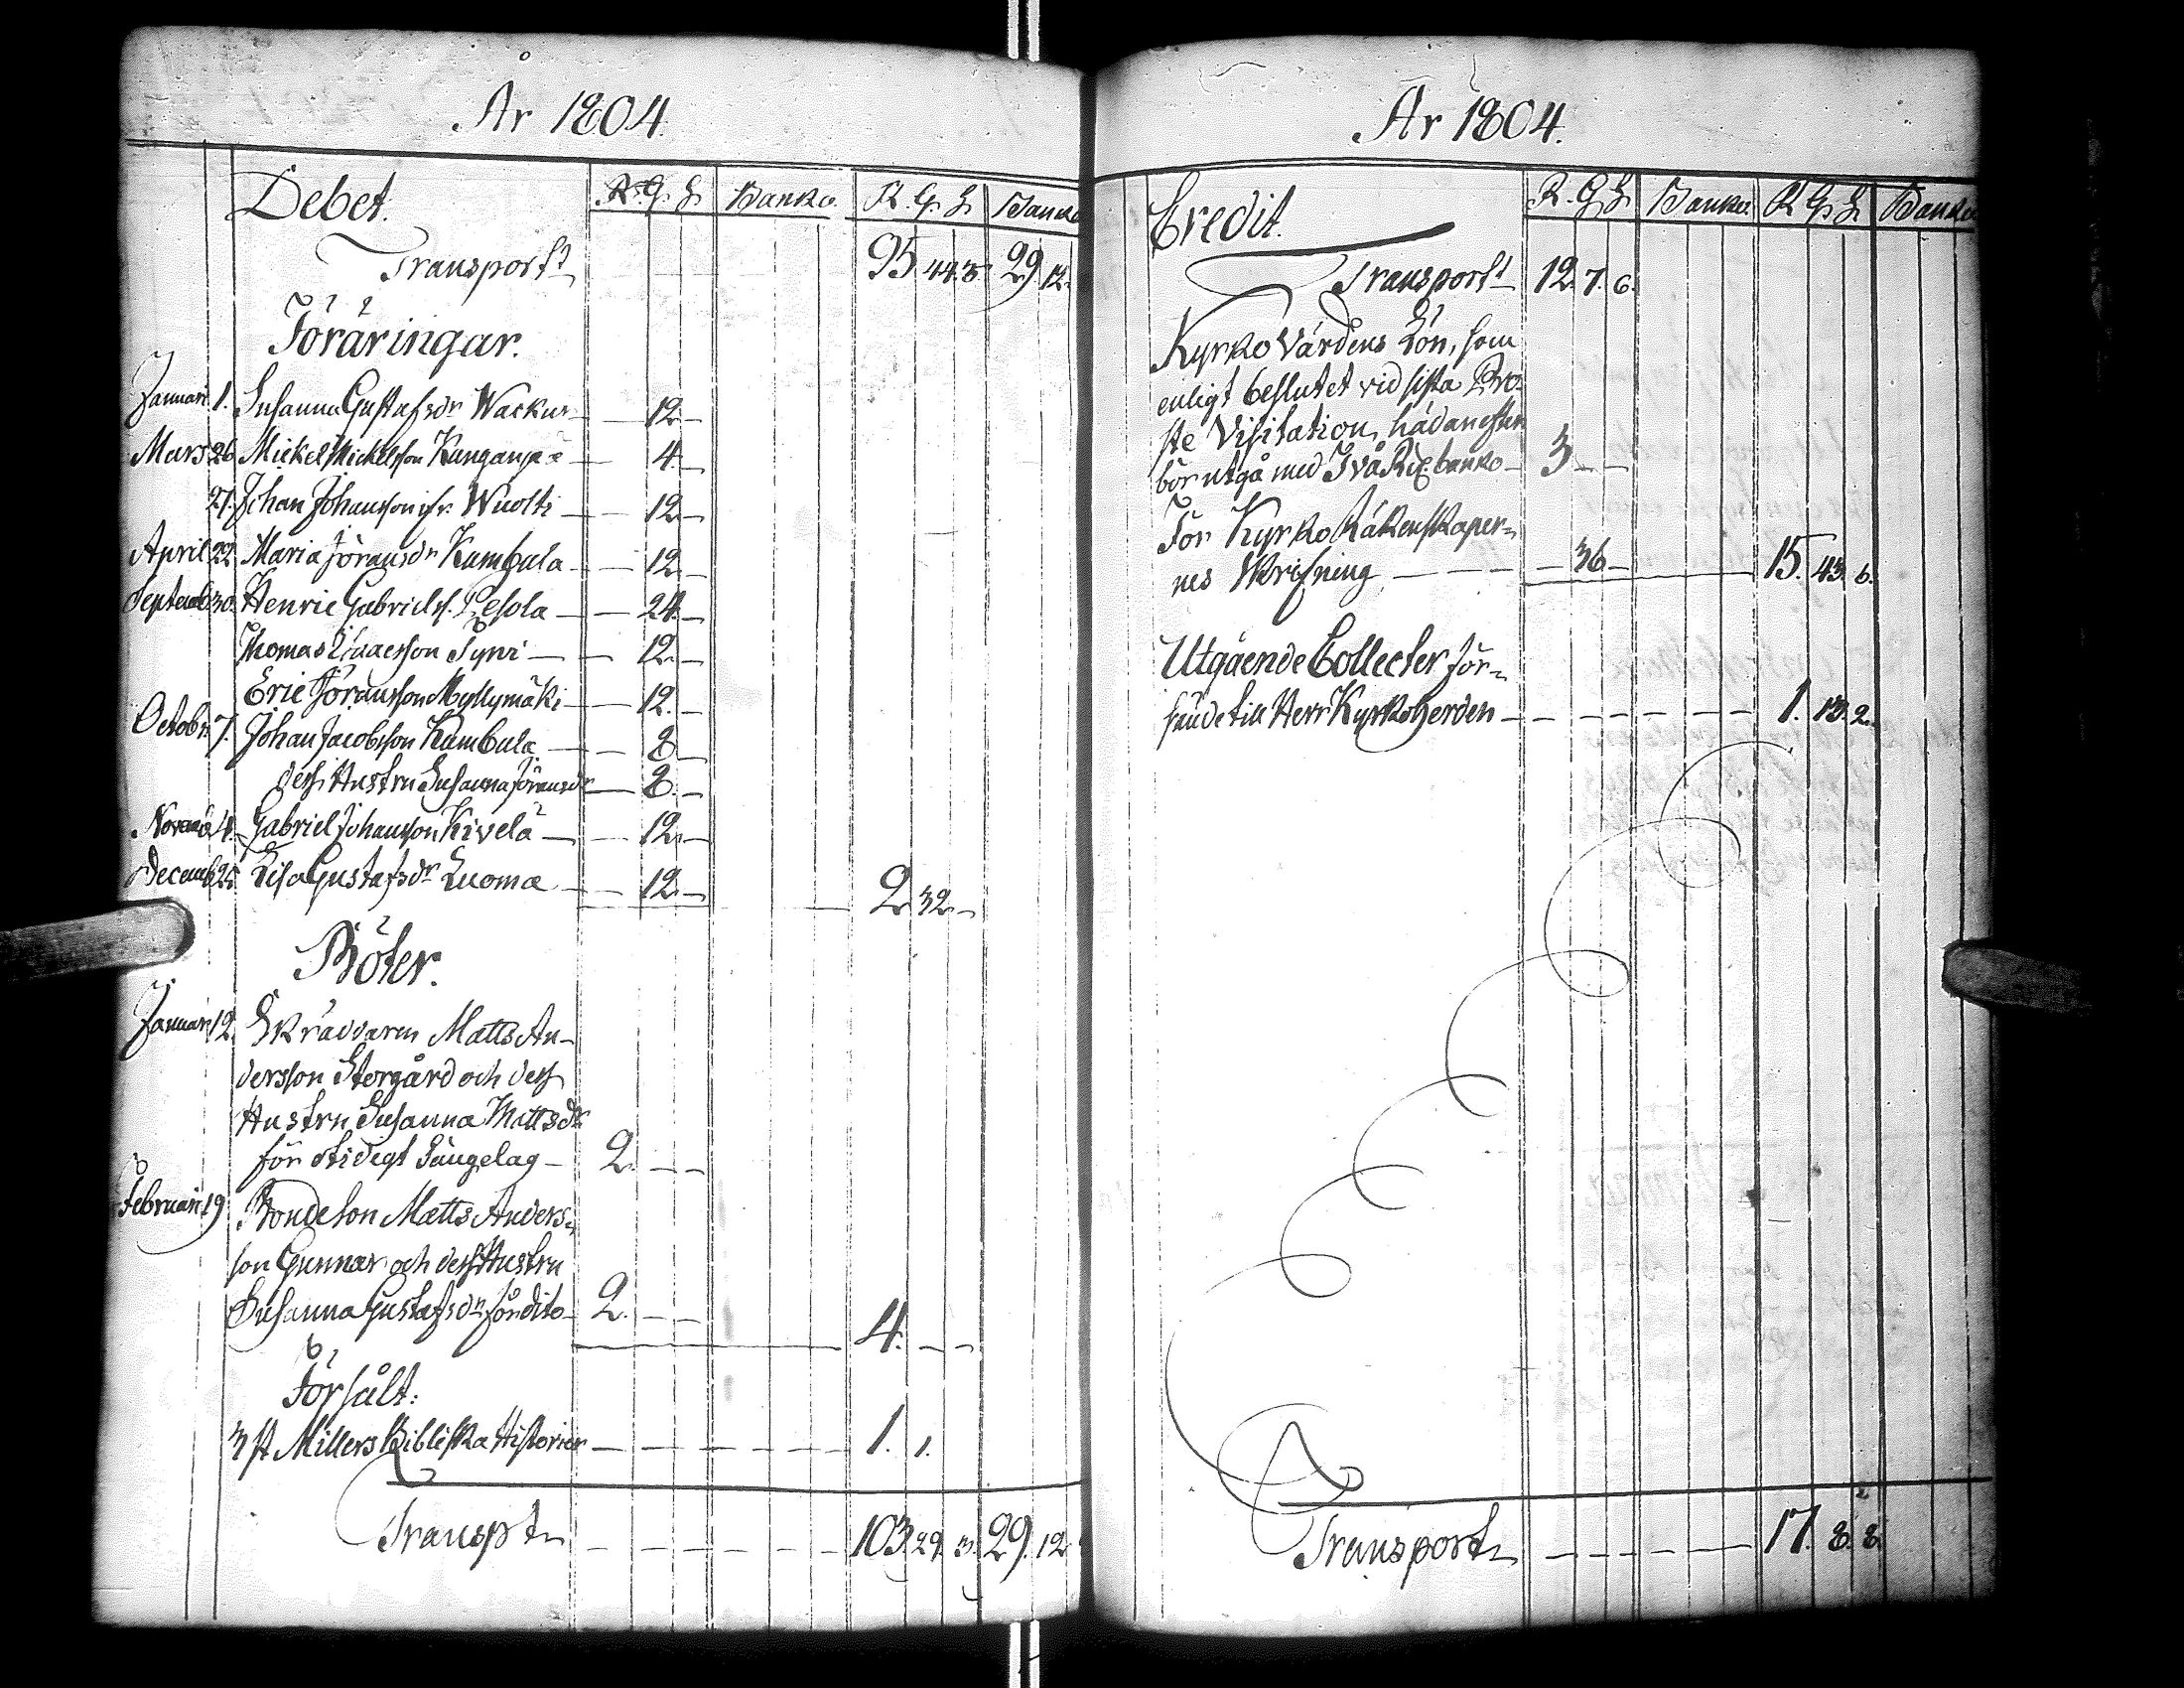 År 1804.
Debet. R. G. S. Banko. R. G. S. Banko
Transport 95. 44. 3. 29. 12.
Föräringar.
Januari 1. Susanna Gustafsdr Wackur — 12 —
Mars 26 Mickel Mickelsson Kangas — 4 —
27. Johan Johansson Wuolti — 12 —
April 22 Maria Jöransdr Kambula — 12 —
Septemb 30 Henric Gabrielss. Pesola — 24 —
Thomas Isacsson Syni — 12 —
Eric Jöransson Myllymäki — 12 —
Octobr 7. Johan Jacobsson Kambula — 8 —
dess Hustru Susanna Jöransdr — 8 —
Novemb 4. Gabriel Johansson Kivelä — 12 —
Decemb 25 Lisa Gustafsdr Luoma — 12 — 2. 32 —
Böter.
Januari 12. Skräddaren Matts An-
dersson Storgård och dess
Hustru Susanna Mattsdr
för otidegt Sängelag — 2. — —
Februari 19 Bondeson Matts Anders-
son Gunnar och dess Hustru
Susanna Gustafsdr för dito — 2. — — 4. — —
Försålt:
3 st Millers Bibliska Historier — 1. 1.
Transpt 103. 29. 3. 29. 12
År 1804.
Credit. R. G. S. Banko. R. G. S. Banko
Transport 12. 7. 6.
Kyrko Värdens Lön, som
enligt beslutet vid sista Pro-
ste Visitation, hädanefter
bör utgå med Två Rd banko — 3 — —
För Kyrko Räkenskaper-
nes Skrifning — 36 — 15. 43. 6.
Utgående Collecter för-
sände till Herr Kyrkoherden — 1. 13. 2.
Transport 17. 8. 8.